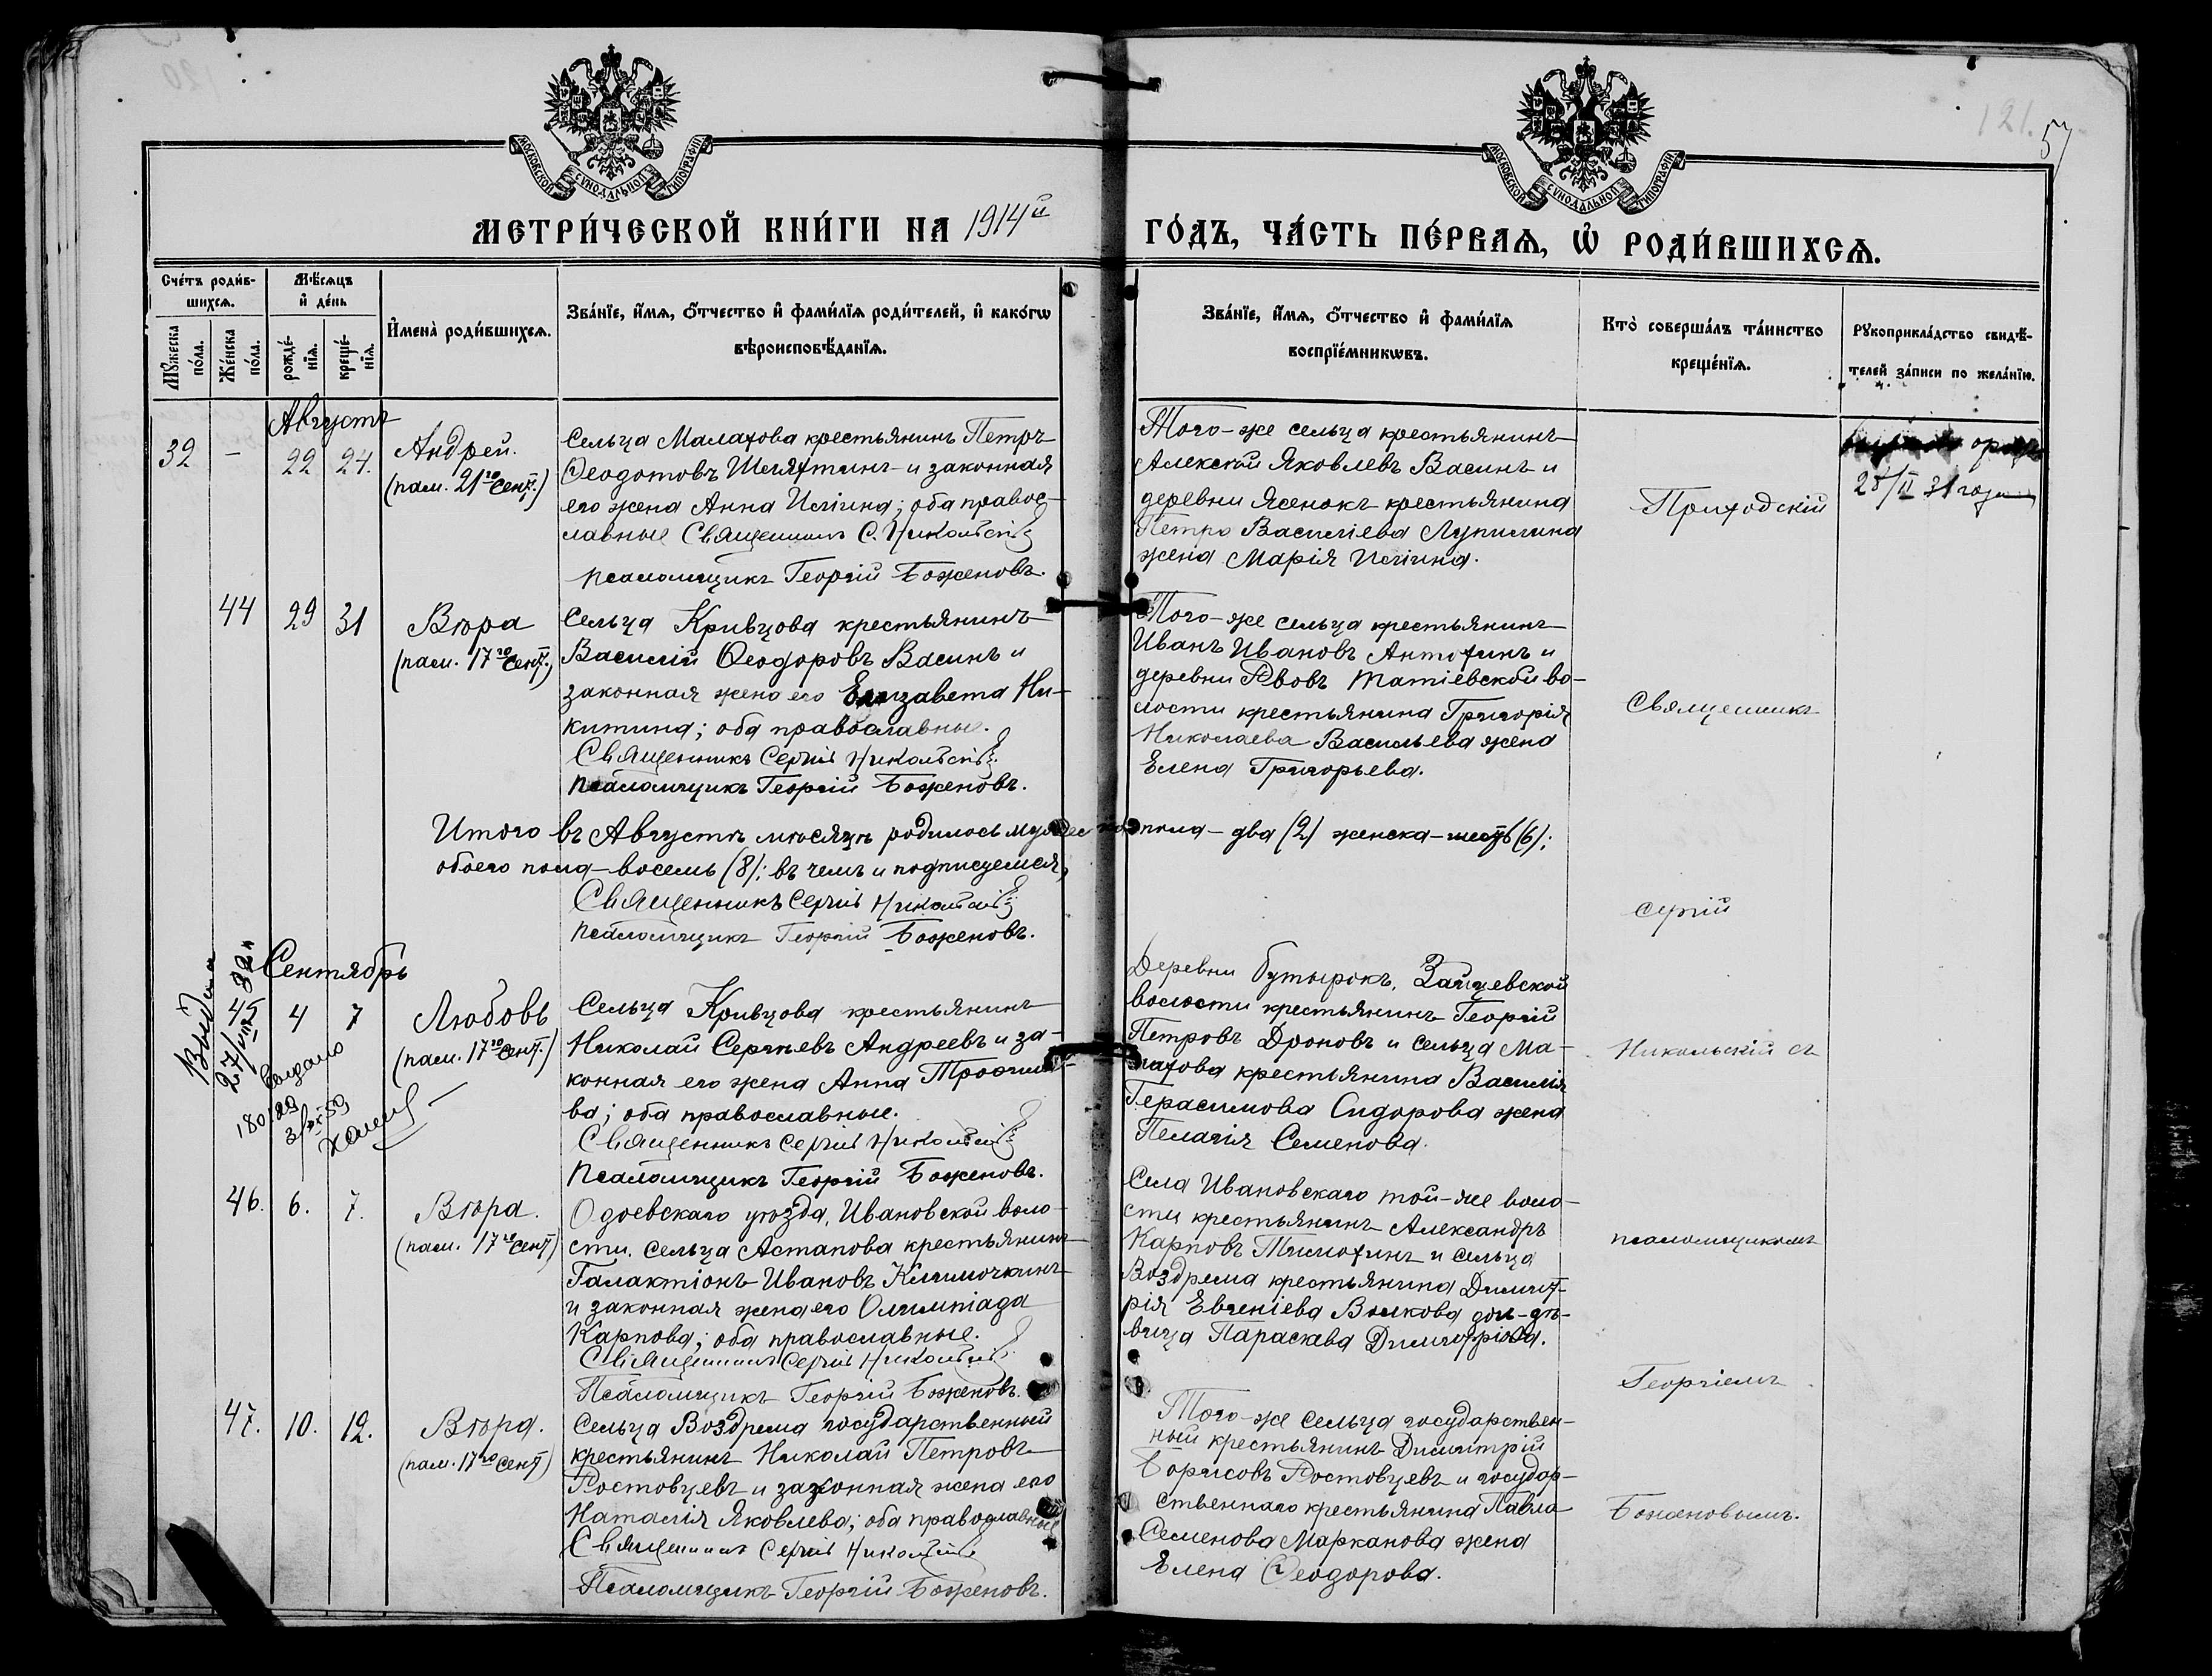 121.
57
МОСКОВСКОЙ СѴНОДАЛЬНОЙ ТИПОГРАФІИ
МОСКОВСКОЙ СѴНОДАЛЬНОЙ ТИПОГРАФІИ
МЕТРИ́ЧЕСКОЙ КНИ́ГИ НА 1914й
ГО́ДЪ, ЧА́СТЬ ПЕ́РВАѦ, Ѡ҆ РОДИ́ВШИХСѦ.
Сче́тъ роди́в-
шихсѧ.
Мꙋ́жеска по́ла.
Же́нска по́ла.
Мѣ́сѧцъ
и҆ де́нь
рожде́-
нїѧ.
креще́-
нїѧ.
И҆мена̀ роди́вшихсѧ.
Зва́нїе, и҆́мѧ, ѻ҆́тчество и҆ фами́лїѧ роди́телей, и҆ како́гѡ
вѣроисповѣ́данїѧ.
Зва́нїе, и҆́мѧ, ѻ҆́тчество и҆ фами́лїѧ
воспрїе́мникѡвъ.
Кто̀ соверша́лъ та́инство
креще́нїѧ.
Рꙋкоприкла́дство свидѣ́-
телей за́писи по жела́нїю.
Августъ
32 - 22 24.
Андрей.
(пам. 21го Сент.)
Сельца Малахова крестьянинъ Петръ
Ѳеодотовъ и законная
его жена Анна Ильина; оба правос-
лавные Священникъ С. Никольскій
Псаломщикъ Георгій Боженовъ.
Того-же сельца крестьянинъ
Алексѣй Яковлевъ Васинъ и
деревни Ясенокъ крестьянина
Петра Василіева Лупилина
жена Марія Ильина.
Приходскій
25/II 31 года
44 29 31
Вѣра
(пам. 17го Сент.)
Сельца Кривцова крестьянинъ
Василій Ѳеодоровъ Васинъ и
законная жена его Елизавета Ни-
китина; оба православные.
Священникъ Сергій Никольскій
Псаломщикъ Георгій Боженовъ.
Того-же сельца крестьянинъ
Иванъ Ивановъ Антохинъ и
деревни Рвовъ Татіевской во-
лости крестьянина Григорія
Николаева Васильева жена
Елена Григорьева.
Священникъ
Итого въ Августѣ мѣсяцѣ родилось мужеска пола - два (2) женска - шесть (6);
обоего пола - восемь (8); въ чемъ и подписуемся,
Священникъ Сергій Никольскій
Псаломщикъ Георгій Боженовъ.
Сергій
Сентябрь
45 4 7
Выдано
27/VIII 32 г
Выдано
180129
3/VI 59
Любовь
(пам. 17го Сент.)
Сельца Кривцова крестьянинъ
Николай Сергѣевъ Андреевъ и за-
конная его жена Анна Трофимо-
ва; оба православные.
Священникъ Сергій Никольскій
Псаломщикъ Георгій Боженовъ.
Деревни Бутырокъ, Зайцевской
волости крестьянинъ Георгій
Петровъ Дроновъ и сельца Ма-
лахова крестьянина Василія
Герасимова Сидорова жена
Пелагія Семенова.
Никольскій съ
46. 6. 7.
Вѣра.
(пам. 17го Сент.)
Одоевскаго уѣзда, Ивановской воло-
сти, сельца Астапова крестьянинъ
Галактіонъ Ивановъ Климочкинъ
и законная жена его Олимпіада
Карпова; оба православные.
Священникъ Сергій Никольскій
Псаломщикъ Георгій Боженовъ.
Села Ивановскаго той-же воло-
сти крестьянинъ Александръ
Карповъ Тимохинъ и сельца
Воздрема крестьянина Димит-
рія Евгеніева Волкова дочь-дѣ-
вица Параскева Димитріева.
псаломщикомъ
Георгіемъ
47. 10. 12.
Вѣра.
(пам. 17го Сент.)
Сельца Воздрема государственный
крестьянинъ Николай Петровъ
Ростовцевъ и законная жена его
Наталія Яковлева; оба православные
Священникъ Сергій Никольскій
Псаломщикъ Георгій Боженовъ.
Того-же сельца государствен-
ный крестьянинъ Димитрій
Борисовъ Ростовцевъ и государ-
ственнаго крестьянина Павла
Семенова Марканова жена
Елена Ѳеодорова.
Боженовымъ.